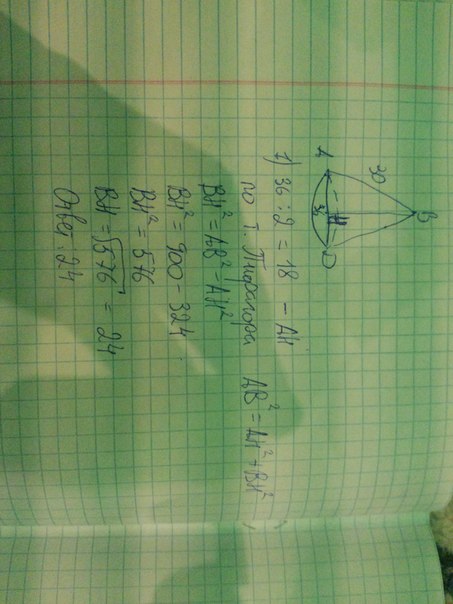 B
30
A
H
36
D
1) 36 : 2 = 18 - AH
по т. Пифагора AB² = AH² + BH²
BH² = AB² - AH²
BH² = 900 - 324
BH² = 576
BH = √576 = 24
Ответ: 24